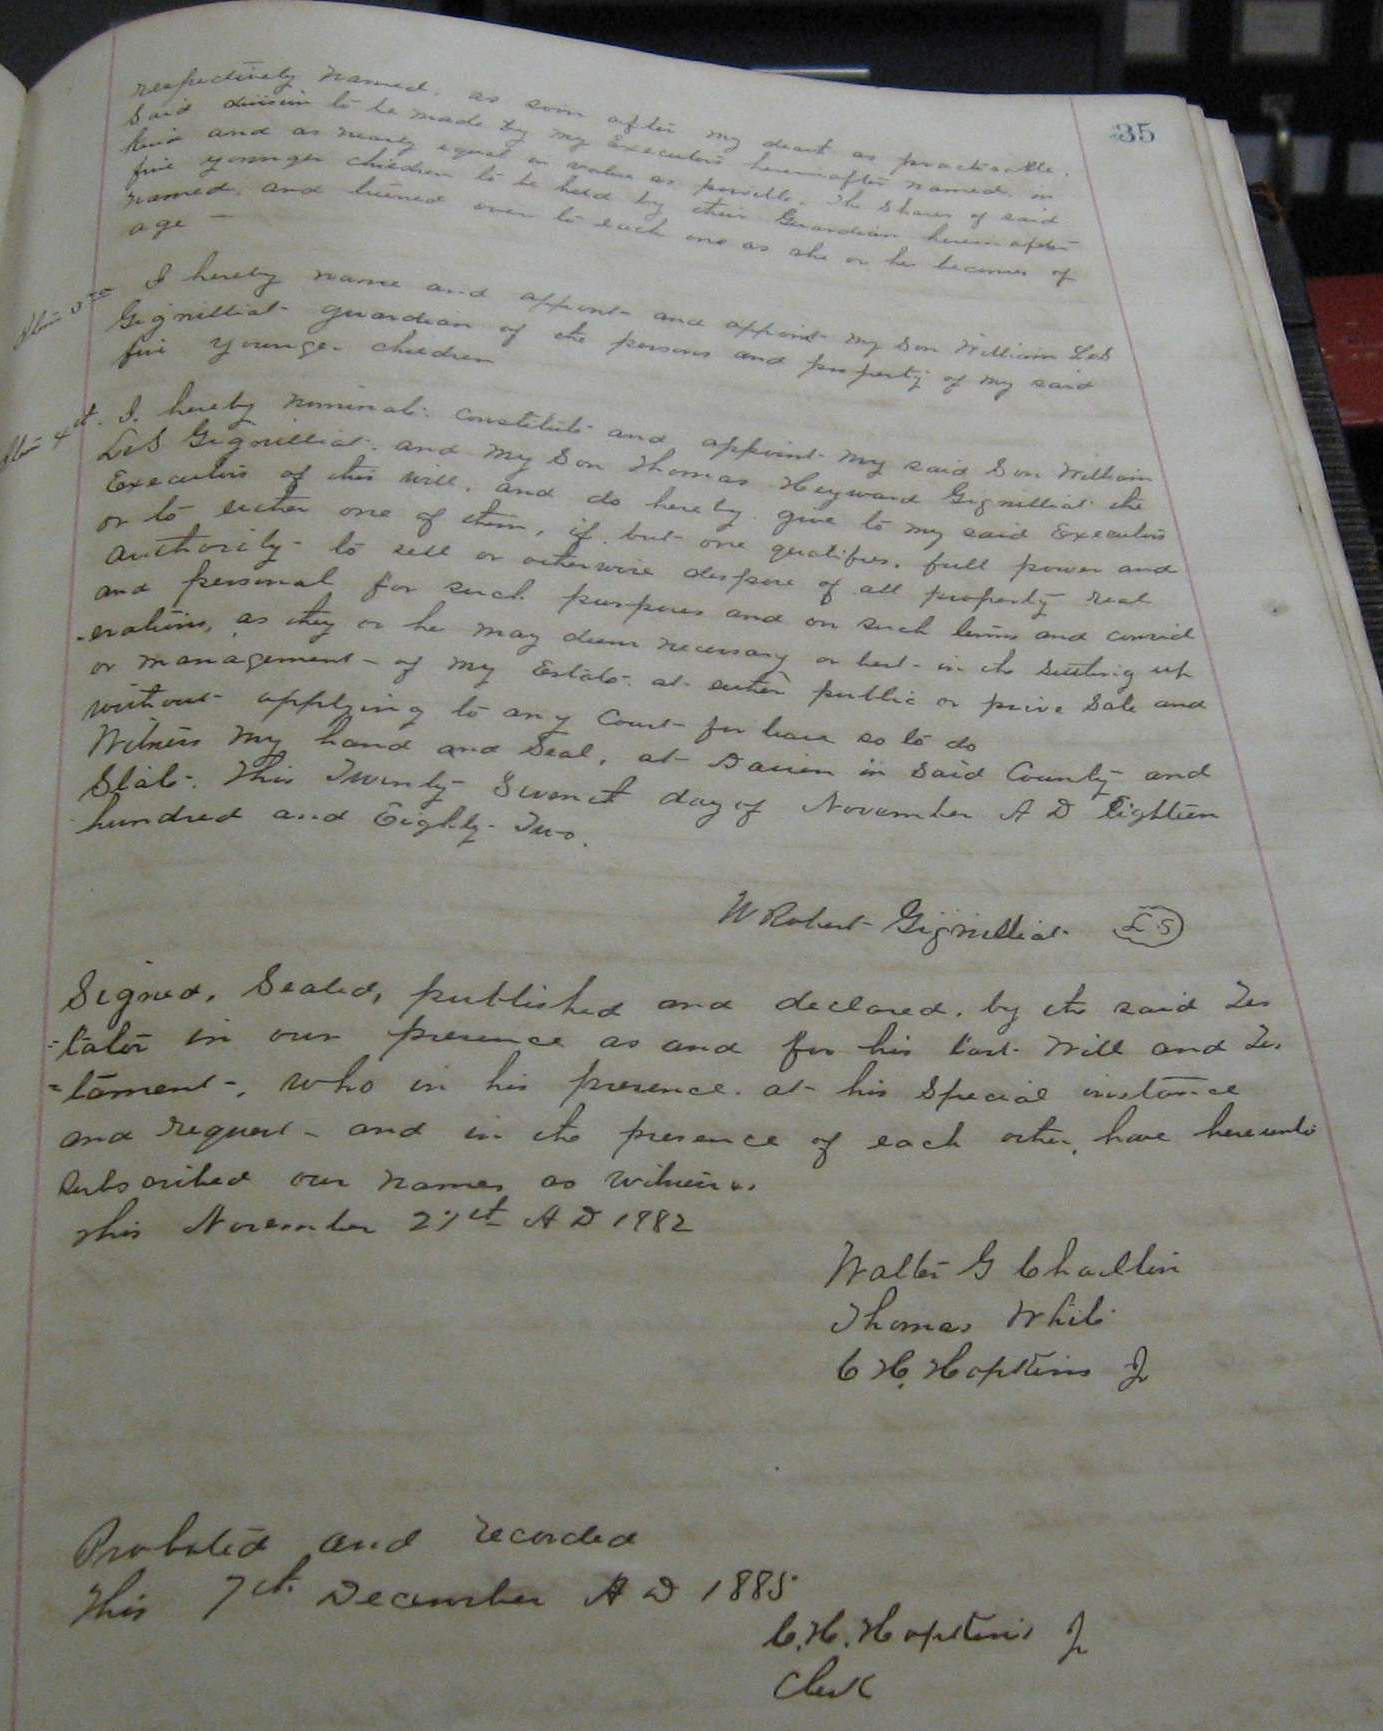 35
respectively named, as soon after my death as practicable.
Said division to be made by my Executors hereinafter named, in
kind and as nearly equal in value as possible. The Shares of said
five younger children to be held by their Guardian herein after
named, and turned over to each one as she or he becomes of
age —
Item 3rd I hereby name and appoint and appoint my Son William LeS
Gignilliat guardian of the persons and property of my said
five younger children
Item 4th. I. hereby nominate constitute and appoint my said Son William
LeS Gignilliat. and my Son Thomas Heyward Gignilliat the
Executors of this will, and do hereby give to my said Executors
or to either one of them, if but one qualifies, full power and
authority to sell or otherwise dispose of all property real
and personal for such purposes and on such terms and consid
-erations, as they or he may deem necessary or best in the settling up
or management of my Estate. at either public or prive Sale and
without applying to any Court for leave so to do
Witness my hand and Seal, at Darien in Said County and
State. This Twenty Seventh day of November A D Eighteen
hundred and Eighty-Two.
W Robert Gignilliat LS
Signed, Sealed, published and declared. by the said Tes
=tator in our presence as and for his last Will and Tes
=tament, who in his presence. at his Special instance
and request and in the presence of each other, have hereunto
subscribed our names as witness.
This November 27th A D 1882
Walter G
Thomas White
C H. Hopkins Jr
Probated and recorded
This 7th December A D 1885
C. H. Hopkins Jr
Clerk